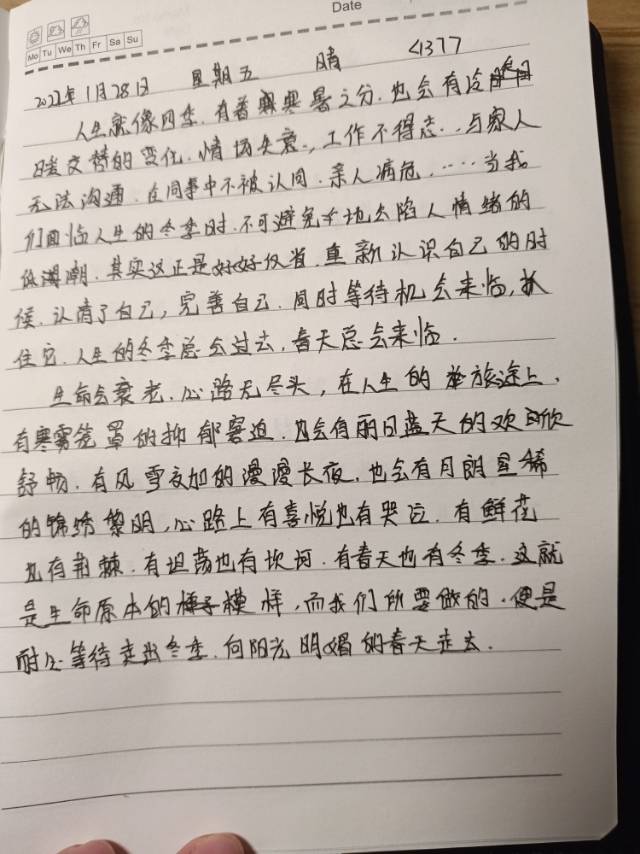 Date
Mo Tu We Th Fr Sa Su
2022年1月28日 星期五 晴 <1377
人生就像四季.有着寒暑之分.也会有冷
暖交替的变化.情场失意.,工作不得志..与家人
无法沟通.在同事中不被认同.亲人病危.....当我
们面临人生的冬季时.不可避免地去陷人情绪的
低潮.其实这正是好好反省.重新认识自己的时
候.认清了自己,完善自己.同时等待机会来临,抓
住它.人生的冬季总会过去,春天总会来临.
生命会衰老.心路无尽头,在人生的旅途上.
有寒雾笼罩的抑郁窘迫.也会有丽日蓝天的欢欣
舒畅.有风雪交加的漫漫长夜.也会有月朗星稀
的锦绣黎明,心路上有喜悦也有哭泣.有鲜花
也有荆棘.有坦荡也有坎坷.有春天也有冬季.这就
是生命原本的模样,而我们所要做的.便是
耐心等待走出冬季.向阳光明媚的春天走去.